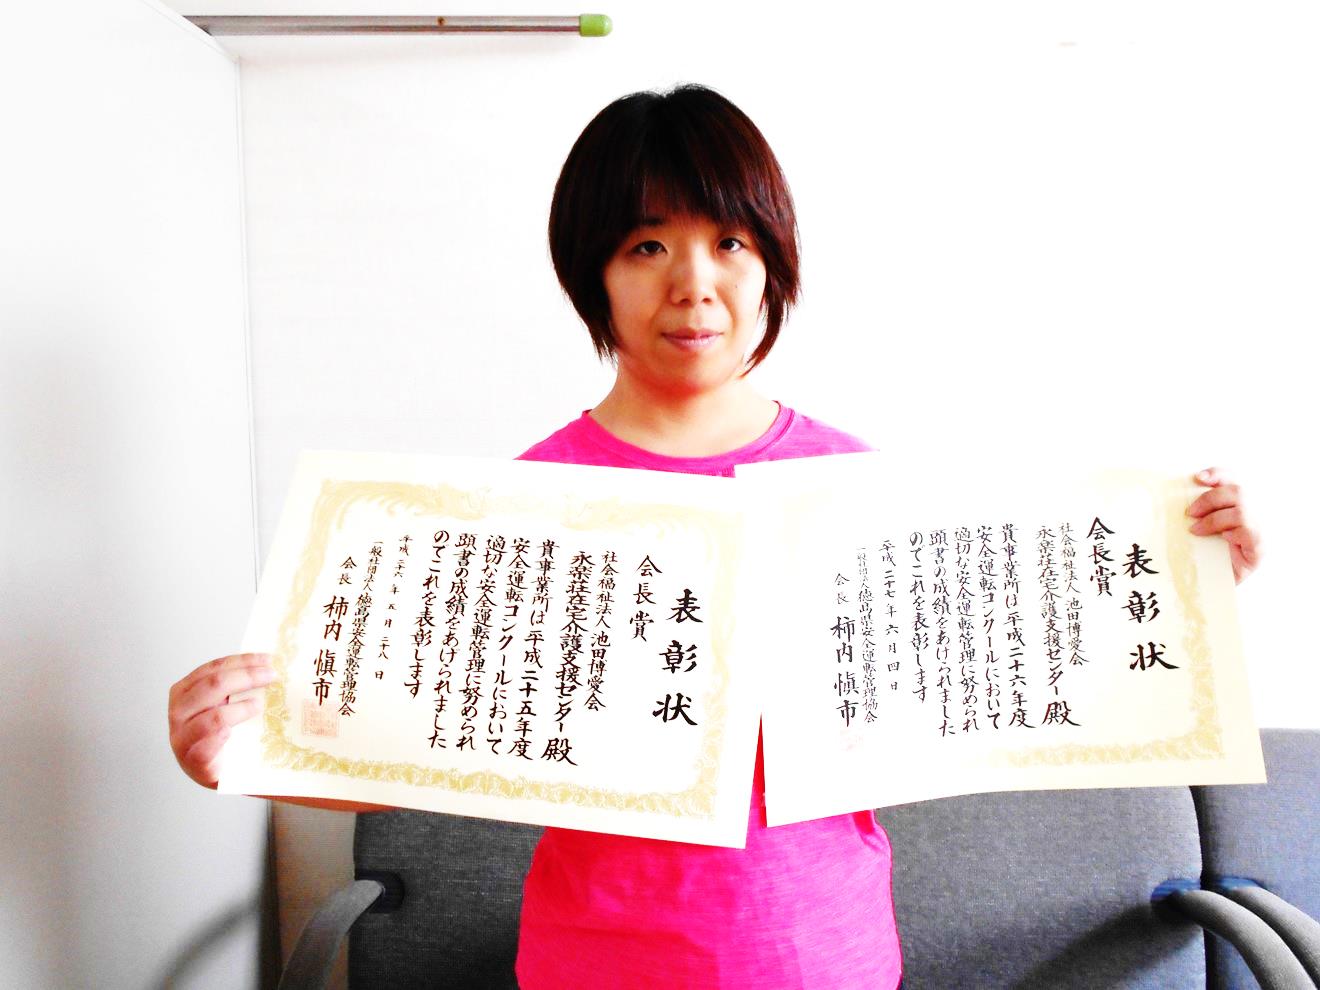 表彰状
会長賞
社会福祉法人 池田博愛会
永楽荘在宅介護支援センター 殿
貴事業所は平成二十五年度
安全運転コンクールにおいて
適切な安全運転管理に努められ
頭書の成績をあげられました
のでこれを表彰します
平成二十六年五月二十八日
一般社団法人徳島県安全運転管理協会
会長 柿内愼市
表彰状
会長賞
社会福祉法人 池田博愛会
永楽荘在宅介護支援センター 殿
貴事業所は平成二十六年度
安全運転コンクールにおいて
適切な安全運転管理に努められ
頭書の成績をあげられました
のでこれを表彰します
平成二十七年六月四日
一般社団法人徳島県安全運転管理協会
会長 柿内愼市